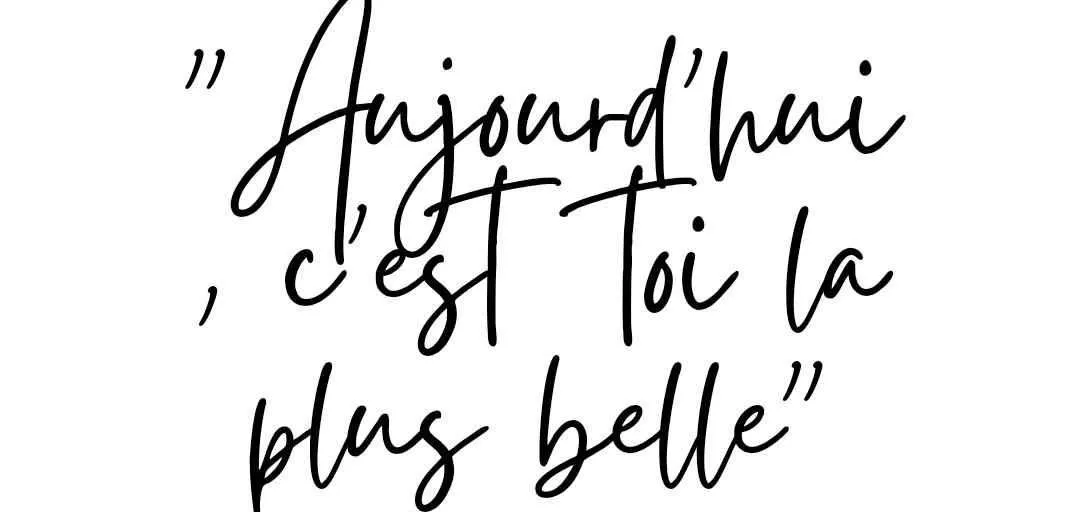 "Aujourd'hui
, c'est toi la
plus belle"